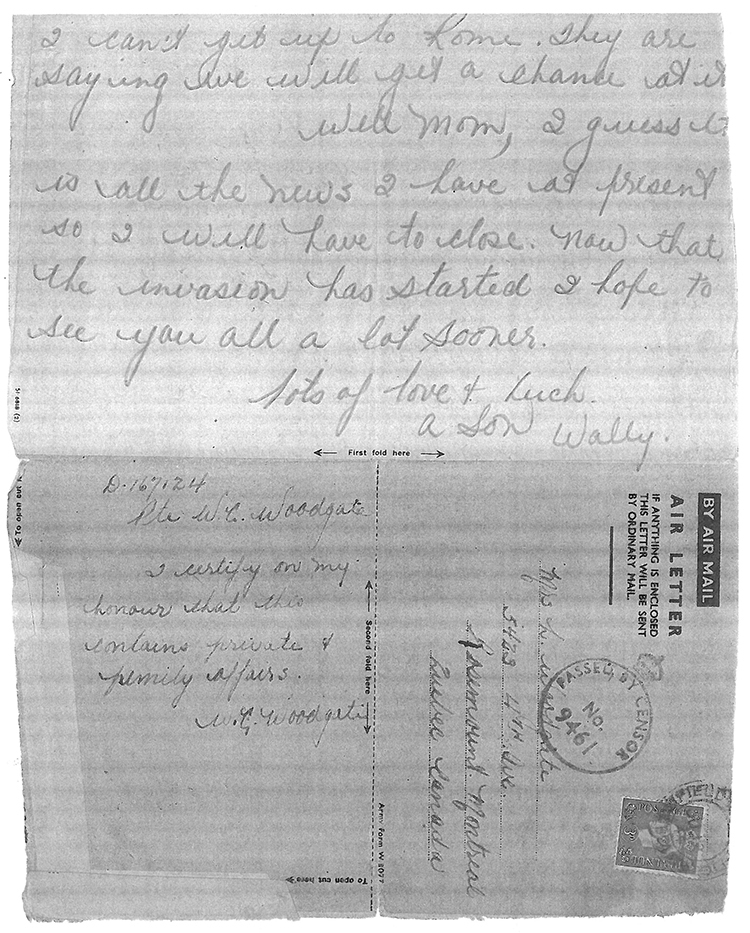 I can't get up to Rome. They are
saying we will get a chance at it
Well Mom, I guess it
is all the news I have at present
so I will have to close. Now that
the invasion has started I hope to
see you all a lot sooner.
lots of love & Luck.
a Son Wally.
First fold here
D.167124
Pte W.C. Woodgate
I certify on my
honour that this
contains private &
family affairs.
W.C. Woodgate
Second fold here
To open cut here
To open cut here
Army Form W
BY AIR MAIL
AIR LETTER
IF ANYTHING IS ENCLOSED
THIS LETTER WILL BE SENT
BY ORDINARY MAIL.
Mrs L. Woodgate
5423 4TH Ave.
Rosemount Montreal
Quebec Canada
PASSED BY CENSOR
No.
9461
FIELD
POSTAGE